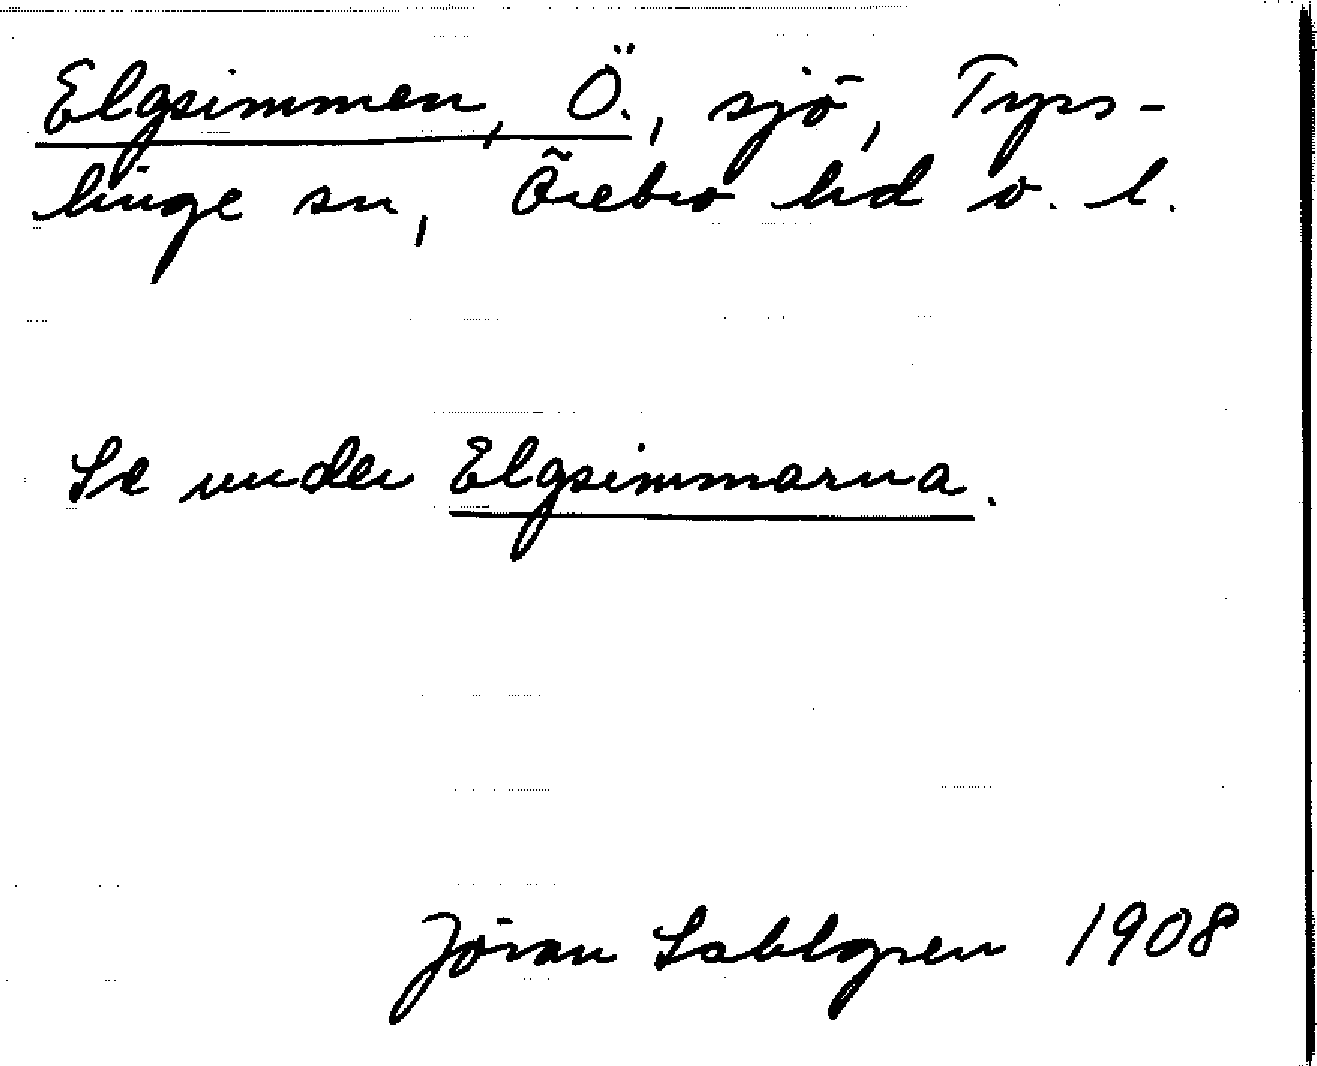 Elgsimmen, Ö., sjö, Tyss-
linge sn, Örebro hd o. l.
Se under Elgsimmarna.
Jöran Sahlgren 1908